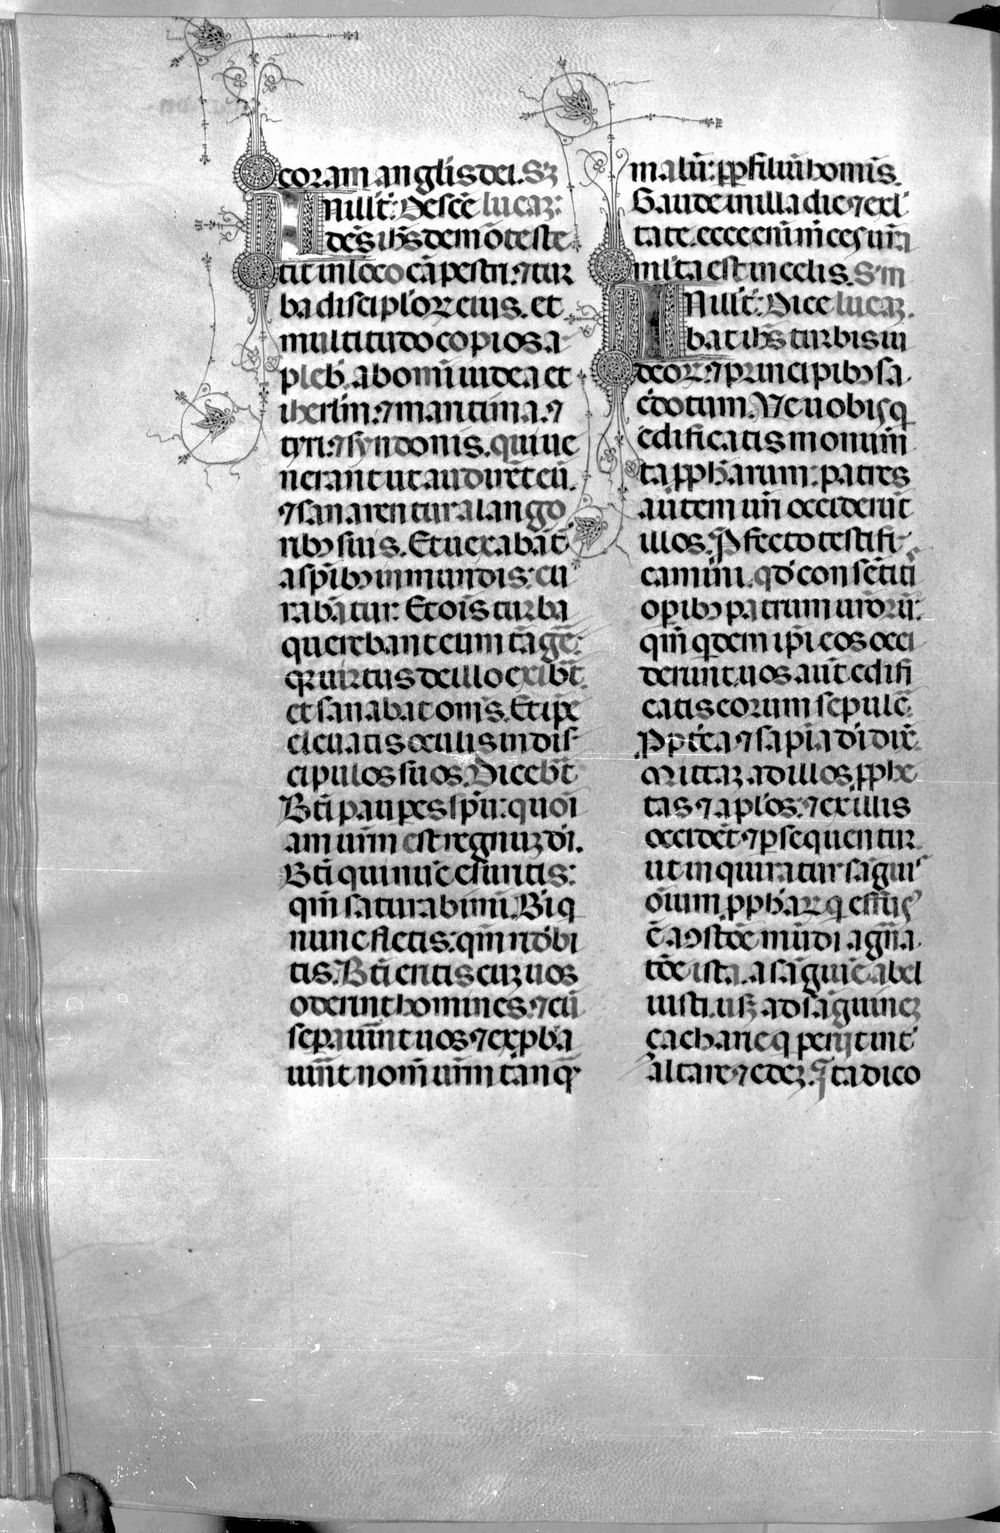 coram anglis dei. Sz
In illt̄: Desce lucaz:
dēs ihs de mōte ste
tit in loco cāpestri: ⁊ tur
ba discipl'oꝝ eius. et
multitudo copiosa
pleb̄. ab omī iudea et
iherl̄m: ⁊ maritima. ⁊
tyri: ⁊ sydonis. qui ue
nerant ut audirēt eū.
⁊ sanarentur a lango
ribꝫ suis. Et uexabāt̄
a spībꝫ inmundis: cu
rabātur. Et oīs turba
querebant eum tāgē:
qꝛ uirtus de illo exibt̄.
et sanabat om̄s. Et ipē
eleuatis oculis in dis
cipulos suos. Dicebt̄
Bt̄i paupes spū: quoi
am ur̄m est regnuꝫ dī.
Bt̄i qui nūc esuritis:
qm̄ saturabimī. Bī q
nunc fletis: qm̄ ridebi
tis. Bt̄i eritis cuꝫ uos
oderint homines. ⁊ cū
sepauīnt uos ⁊ expba
uīnt nom̄ ur̄m tanq̄
malū: ꝓp filiū homīs.
Gaudete in illa die ⁊ exl
tate. ecce enim m̄ces ur̄a
ml̄ta est in celis. S'm
In illt̄: Dice lucaꝫ.
bat ihs turbis iu
deoꝝ ⁊ principibꝫ sa
cdotum. Ve uobis q
edificatis monum̄
ta ꝓph̄arum: patres
autem ur̄i occiderūt
illos. Ꝓfecto testifi
camini. qd̄ consētiti
opibꝫ patrum ur̄orū:
qm̄ qdem ip̄i eos occi
derunt. uos aut̄ edifi
catis eorum sepulc̄.
Ꝓpt̄ea ⁊ sapīa dī dix̄.
Mittaꝫ ad illos ꝓphe
tas ⁊ apl'os. ⁊ ex illis
occidēt ⁊ psequentur
ut inquiratur sāgui
ōium ꝓph̄aꝝ q effus
ē a ↄstōe mūdi a gn̄a
tōe ista. a sāguīe abel
iusti. usꝫ ad sāguineꝫ
çacharie q perijt int̄
altare ⁊ edeꝫ. Ita dico